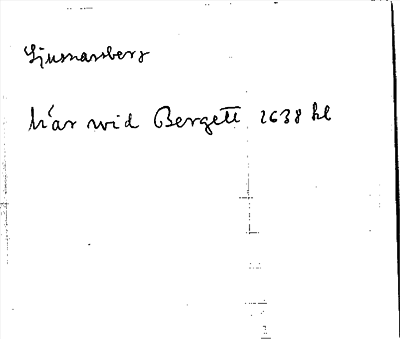 Ljusnarsberg
här wid Bergett 1638 hl